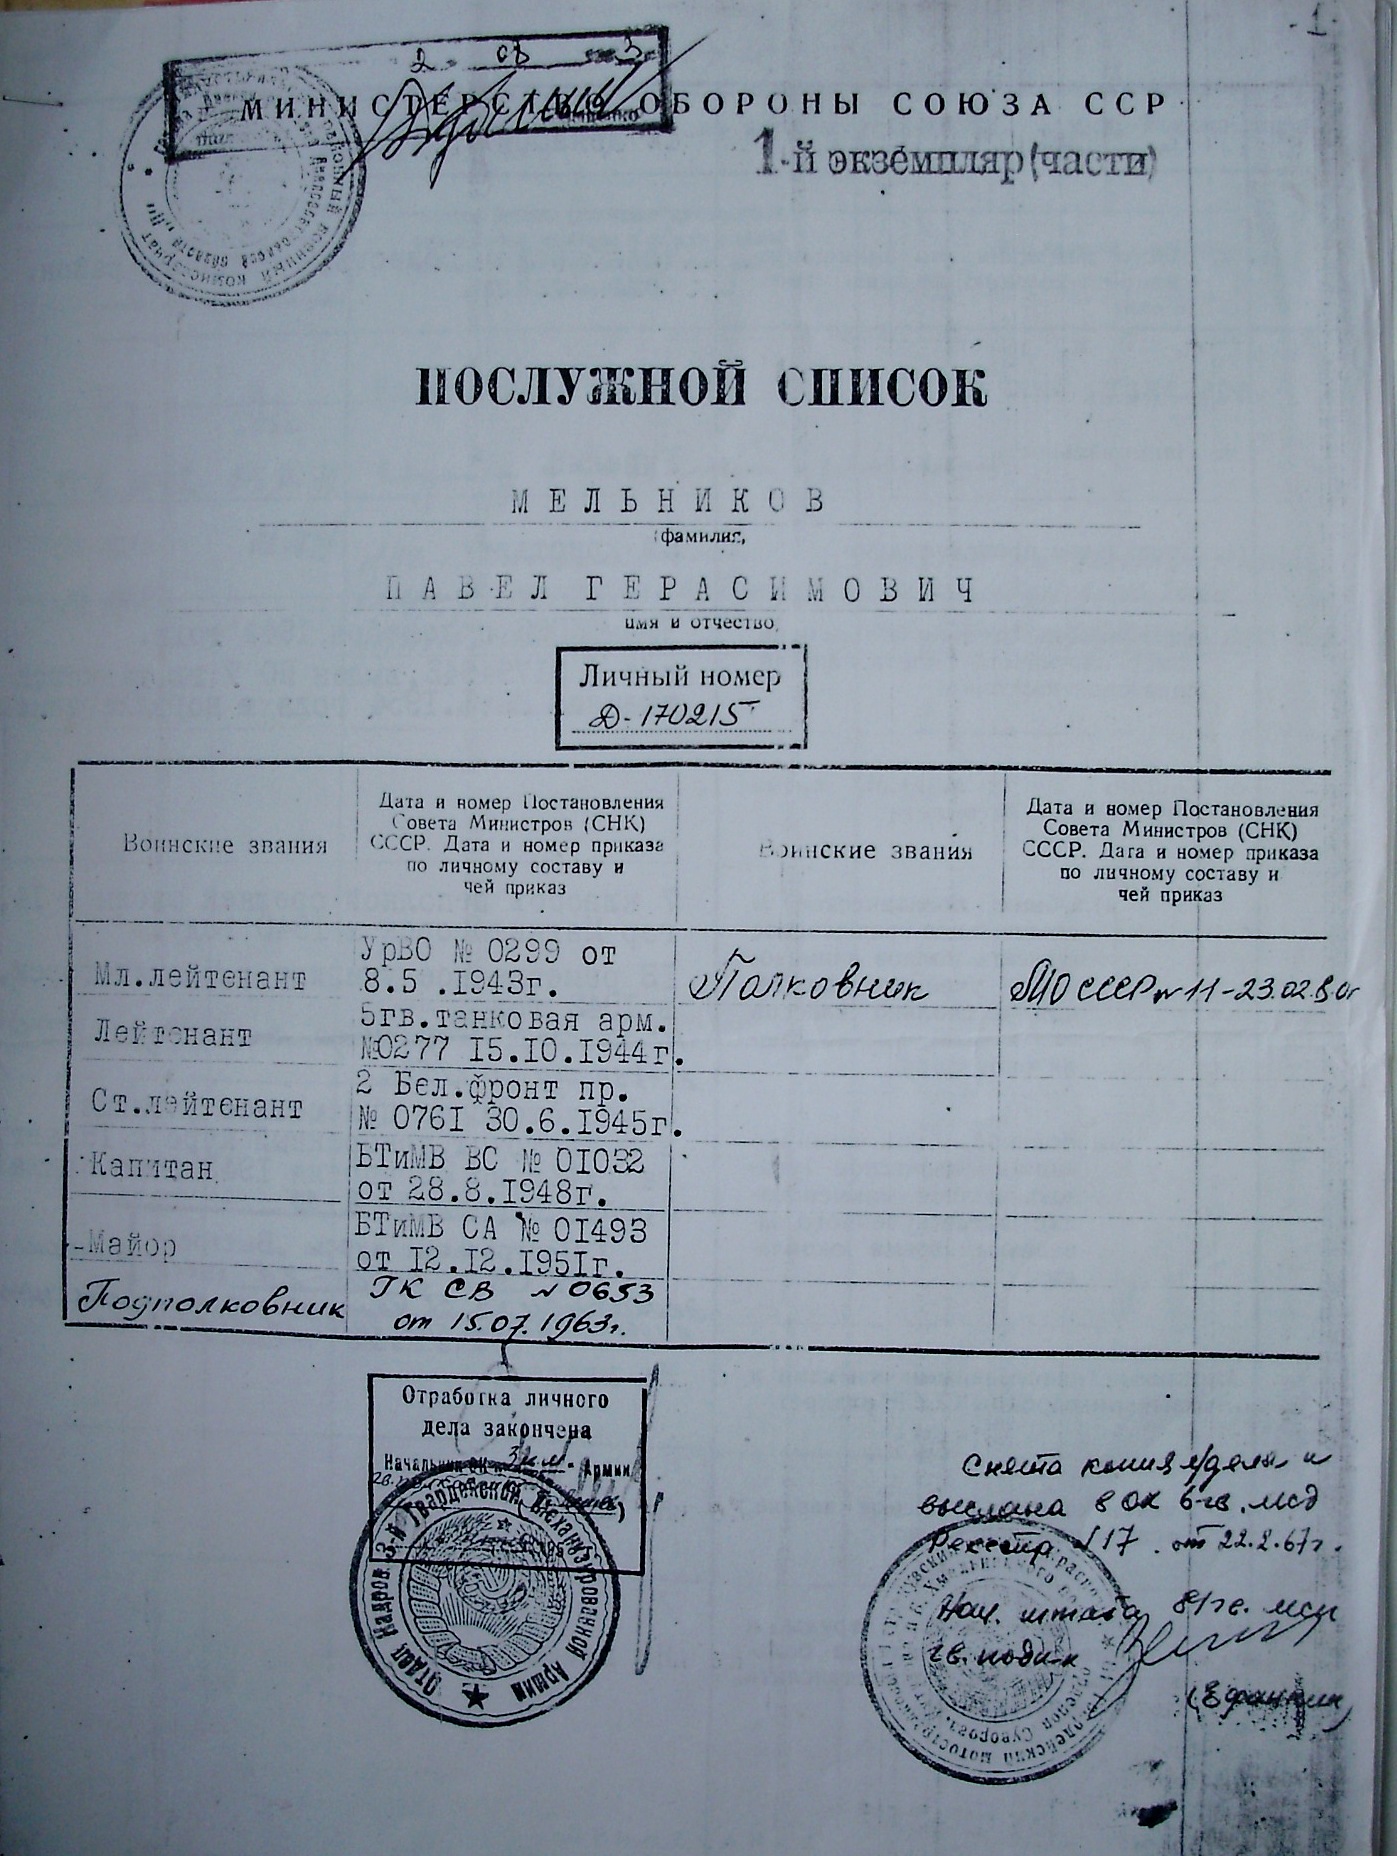 -1-
МИНИСТЕРСТВО ОБОРОНЫ СОЮЗА ССР
1-й экземпляр (части)
ПОСЛУЖНОЙ СПИСОК
МЕЛЬНИКОВ
(фамилия)
ПАВЕЛ ГЕРАСИМОВИЧ
имя и отчество
Личный номер
Д-170215
Воинские звания
Дата и номер Постановления
Совета Министров (СНК)
СССР. Дата и номер приказа
по личному составу и
чей приказ
Воинские звания
Дата и номер Постановления
Совета Министров (СНК)
СССР. Дата и номер приказа
по личному составу и
чей приказ
Мл.лейтенант
УрВО № 0299 от
8.5 .1943г.
Полковник
МО СССР № 11-23.02.80г
Лейтенант
5гв.танковая арм.
№0277 15.10.1944г.
Ст.лейтенант
2 Бел.фронт пр.
№ 0761 30.6.1945г.
Капитан
БТиМВ ВС № 01032
от 28.8.1948г.
Майор
БТиМВ СА № 01493
от 12.12.1951г.
Подполковник
ГК СВ № 0653
от 15.07.1963г.
Отработка личного
дела закончена
Начальник ОК 3 г.м. Армии
Отдел Кадров 3-й Гвардейской Механизированной Армии
Снята копия л/дела и
выслана в ОК 6 гв. мсд
Реестр 117 от 22.2.67г.
Нач. штаба 81 гв. мсп
гв. подп-к
(Ефанкин)